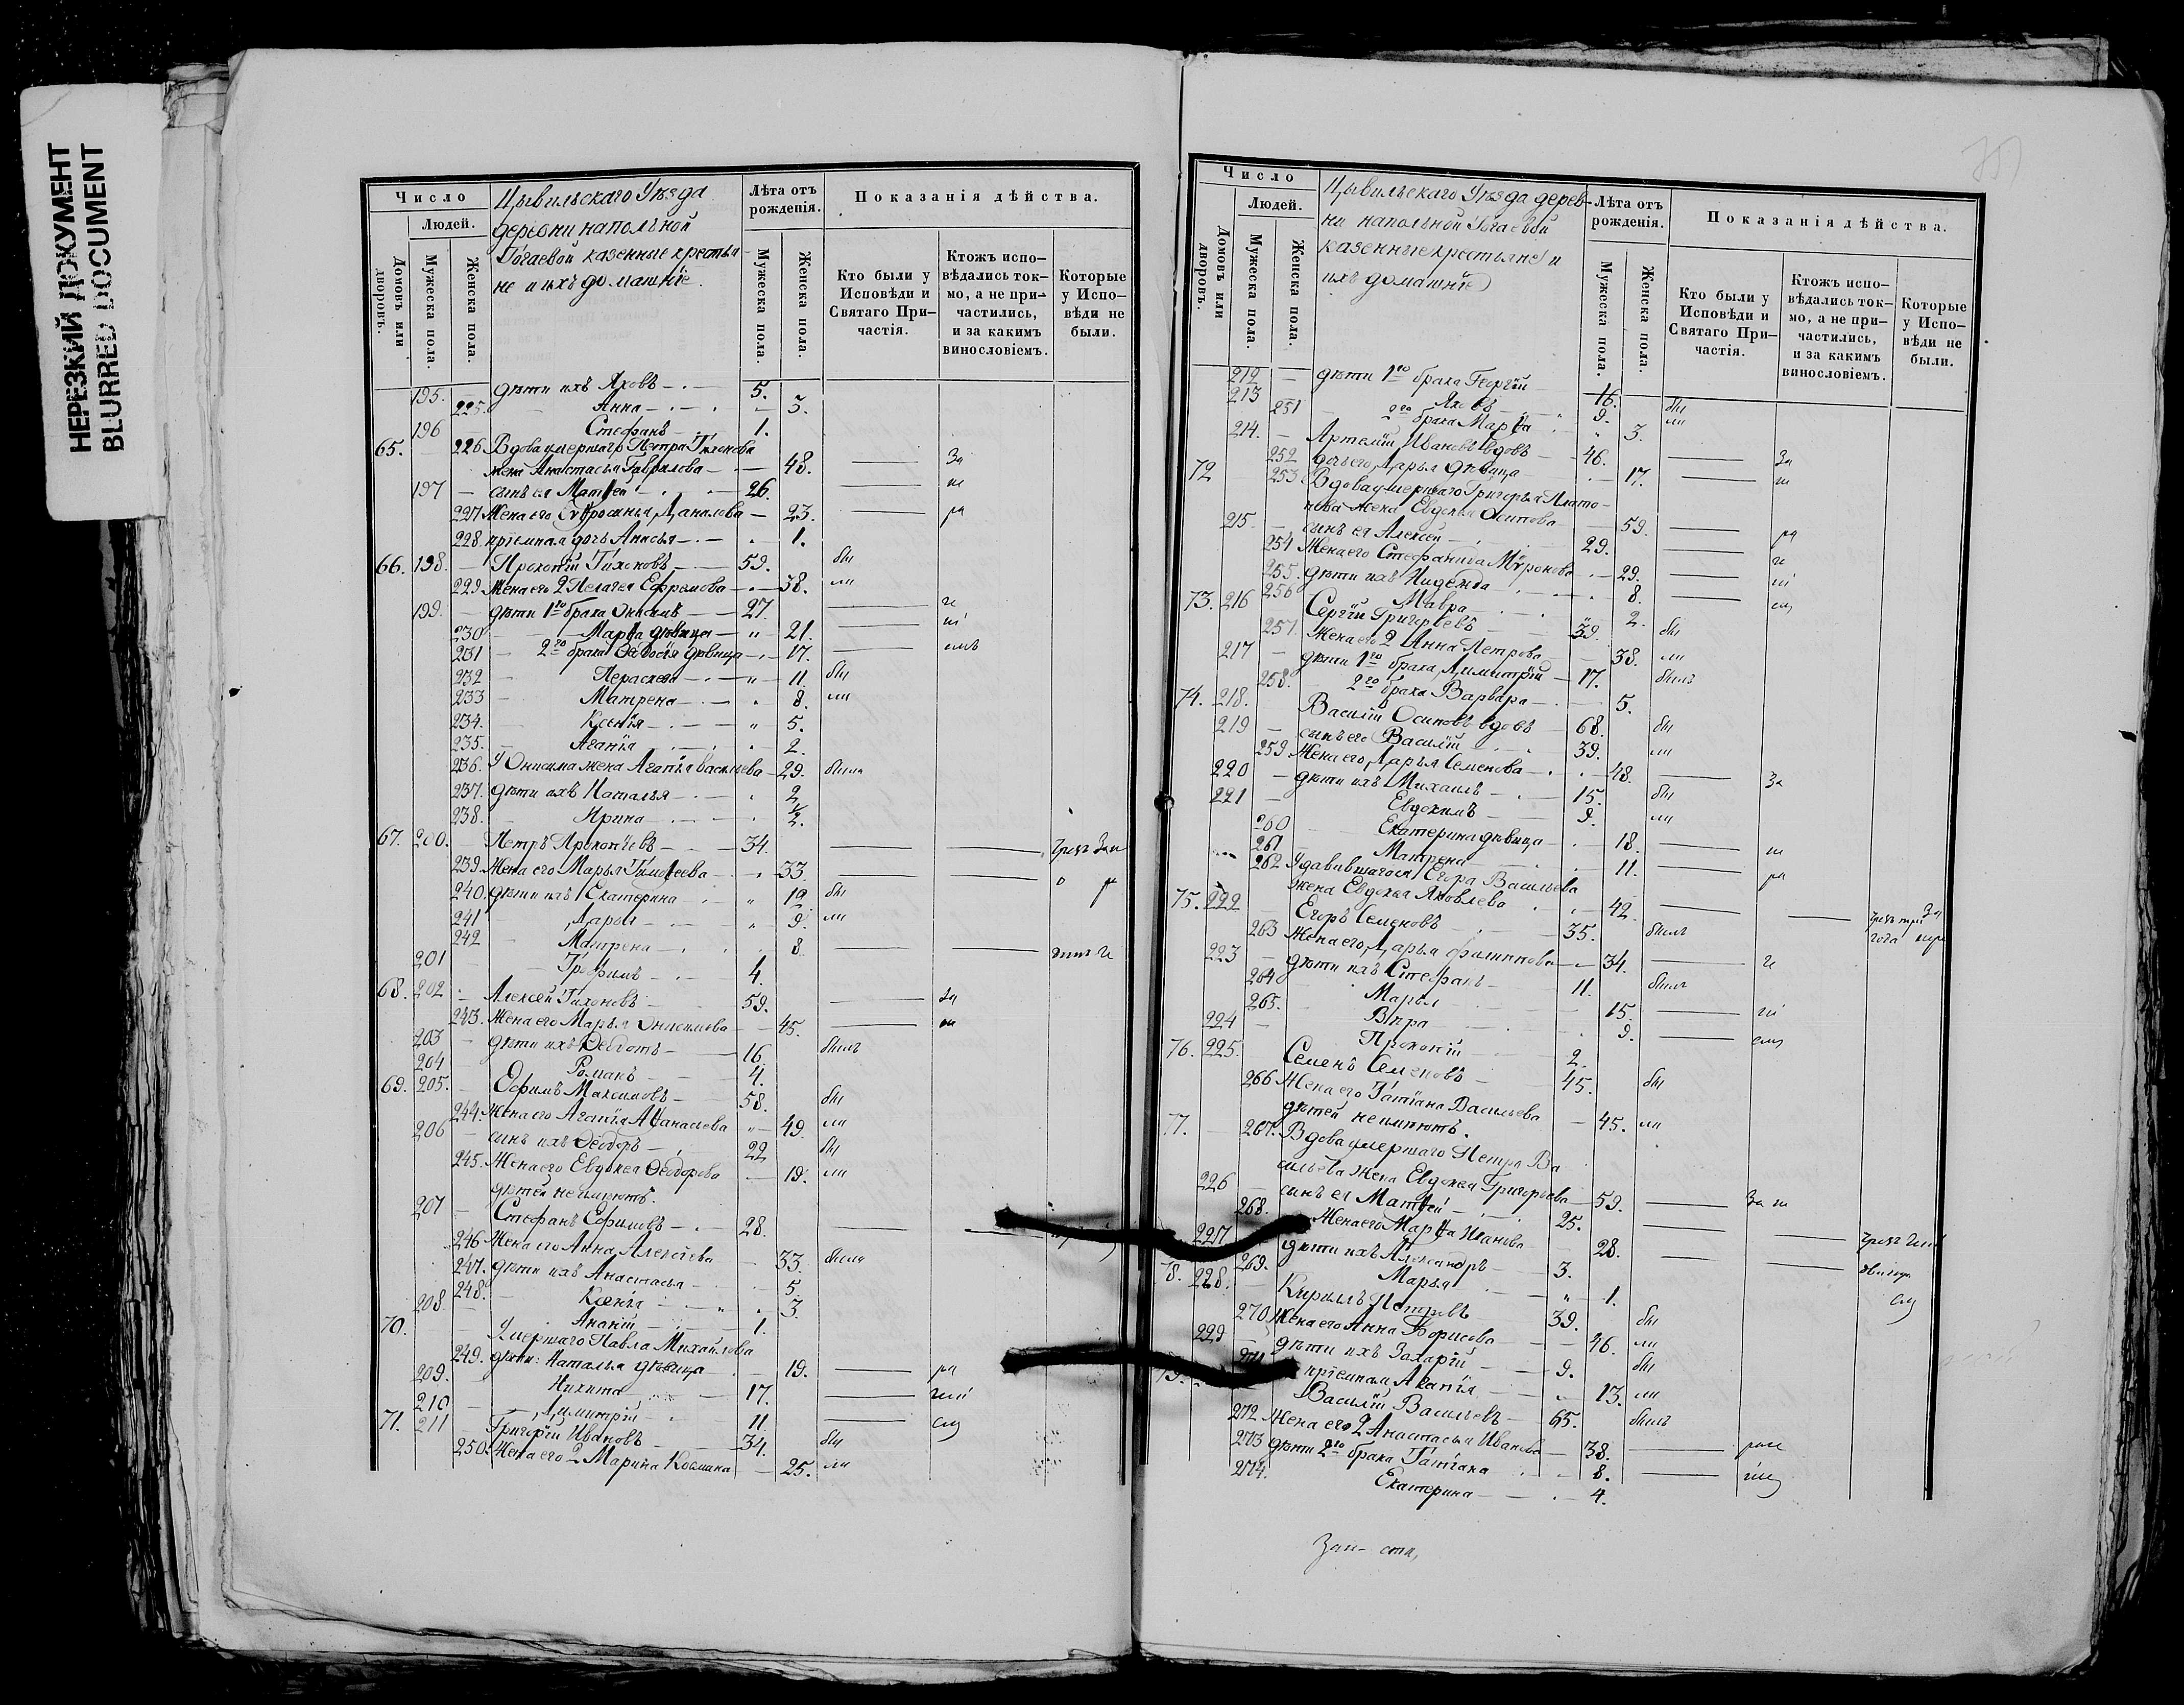 НЕРЕЗКИЙ ДОКУМЕНТ
BLURRED DOCUMENT
Число
Людей.
Домовъ или дворовъ.
Мужеска пола.
Женска пола.
Цывильскаго Уѣзда
деревни напольной
казенные крестья-
не и ихъ домашніе.
Лѣта отъ рожденія.
Мужеска пола.
Женска пола.
Показанія дѣйства.
Кто были у Исповѣди и Святаго При-частія.
Ктожъ испо-вѣдались ток-мо, а не при-частились, и за какимъ винословіемъ.
Которые у Испо-вѣди не были.
195. дѣти ихъ Яковъ 5.
225. Анна 3.
196 Стефанъ 1.
65. 226 Вдова умершаго Петра Тихонова
жена Анастасья Гаврилова 48. За
197 сынъ ея Матѳей 26. та
227 Жена его Данилова 23. ра
228. пріемная дочь Анисья 1.
66. 198. Прокопій Тихоновъ 59. бы
229 Жена его 2 Пелагея Ефремова 38. ли
199. дѣти 1го брака Онисимъ 27.
230 Марѳа дѣвица 21.
231 2го брака дѣвица 17.
232 Параскева 11. бы
233 Матрена 8. ли
234. Ксенія 5.
235. Агапія 2.
236. У Онисима жена Агапія Васильева 29. была
237. дѣти ихъ Наталья 2
238. Ирина 1/2.
67. 200. Петръ Прокопіевъ 34.
239. Жена его Марья Тимоѳеева 33.
240. дѣти ихъ Екатерина 12 бы
241 Дарья 9. ли
242 Матрена 8.
201 Трофимъ 4.
68. 202 Алексѣй Тихоновъ 59. За
243. Жена его Марья Онисимова 45.
203 дѣти ихъ Ѳедотъ 16 былъ
204 Романъ 4.
69. 205. Ефимъ Максимовъ 58. бы
244. Жена его Агапія Аѳанасьева 49. ли
206 сынъ ихъ Ѳеодоръ 22 бы
245. Жена его Евдокея Ѳеодорова 19. ли
дѣтей неимѣютъ.
207 Стефанъ Ефимовъ 28.
246 Жена его Анна Алексѣева 33. была
247. дѣти ихъ Анастасья 5.
248. Ксенія 3.
208. Ананій 1.
70. Умершаго Павла Михайлова
249. дѣти: Наталья дѣвица 19. ра
209. Никита 17.
210 Димитрій 11.
71. 211 Григорій Ивановъ 34. бы
250. Жена его 2 Марина Козмина 25. ли
Число
Людей.
Домовъ или дворовъ.
Мужеска пола.
Женска пола.
Цывильскаго Уѣзда дерев-
ни напольной
казенные крестьяне и
ихъ домашніе
Лѣта отъ рожденія.
Мужеска пола.
Женска пола.
Показанія дѣйства.
Кто были у Исповѣди и Святаго При-частія.
Ктожъ испо-вѣдались ток-мо, а не при-частились, и за какимъ винословіемъ.
Которые у Испо-вѣди не были.
212 дѣти 1го брака Георгій 16. бы
213 Яковъ 9. ли
251 2го брака Марѳа 3.
214. Артемій Ивановъ вдовъ 46. За
252 дочь его Дарья дѣвица 17.
72 253 Вдова умершаго Григорья Плато-
нова жена Евдокея Осипова 59. ра
215 сынъ ея Алексѣй 29.
254 Жена его Стефанида Миронова 29.
255. дѣти ихъ Надежда 8.
256 Мавра 2.
73. 216 Сергій Григорьевъ 39. бы
257. Жена его 2 Анна Петрова 38. ли
217 дѣти 1го брака Димитрій 17. былъ
258. 2го брака Варвара 5.
74. 218. Василій Осиповъ вдовъ 68. бы
219 сынъ его Василій 39. ли
259 Жена его Дарья Семенова 48. За
220 дѣти ихъ Михаилъ 15. бы
221 Евдокимъ 9. ли
260 Екатерина дѣвица 18.
261 Матрена 11. ра
262 Удавившагося Егора Васильева
жена Евдокея Яковлева 42.
75. 222 Егоръ Семеновъ 35. былъ
263 Жена его Дарья Филиппова 34.
223 дѣти ихъ Стефанъ 11. былъ
264 Марья 15.
265. Вѣра 9.
224 Прокопій 2.
76. 225. Семенъ Семеновъ 45. бы
266 Жена его Татіана Васильева 45. ли
дѣтей неимѣютъ.
77. 267. Вдова умершаго Петра Ва
сильева жена Евдокея Григорьева 59.
226 сынъ ея Матѳей 25.
268. Жена его Марѳа Иванова 28.
227 дѣти ихъ Александръ 3.
269. Марья 1.
78. 228. Кирилъ Петровъ 39. бы
270 Жена его Анна Борисова 46. ли
229 дѣти ихъ Захарій 9. бы
пріемная Агапія 13. ли
Василій Васильевъ 65. былъ
272 Жена его 2 Анастасья Иванова 38.
273 дѣти 2го брака Татіана 8.
274. Екатерина 4.